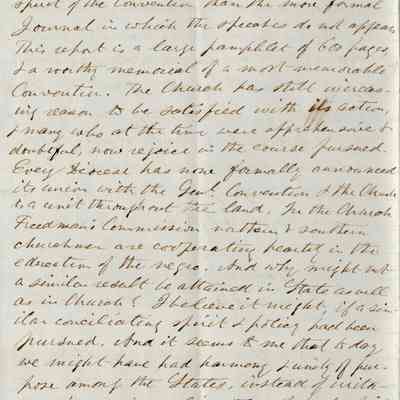 spirit of the Convention than the more formal
Journal in which the speeches do not appear
This report is a large pamphlet of 600 pages,
& a worthy memorial of a most memorable
Convention. The Church has still increas-
ing reason to be satisfied with its action,
& many who at the time were apprehensive &
doubtful, now rejoice in the course pursued.
Every Diocese has now formally announced
its union with the Genl. Convention & the Church
is a unit throughout the land. In the Church
Freedman's Commission northern & southern
churchmen are cooperating hearted in the
education of the negro. And why might not
a similar result be attained in State as well
as in Church? I believe it might, if a sim-
ilar conciliating spirit & policy had been
pursued. And it seems to me that to day
we might have had harmony & unity of pur-
pose among the States, instead of irrita-